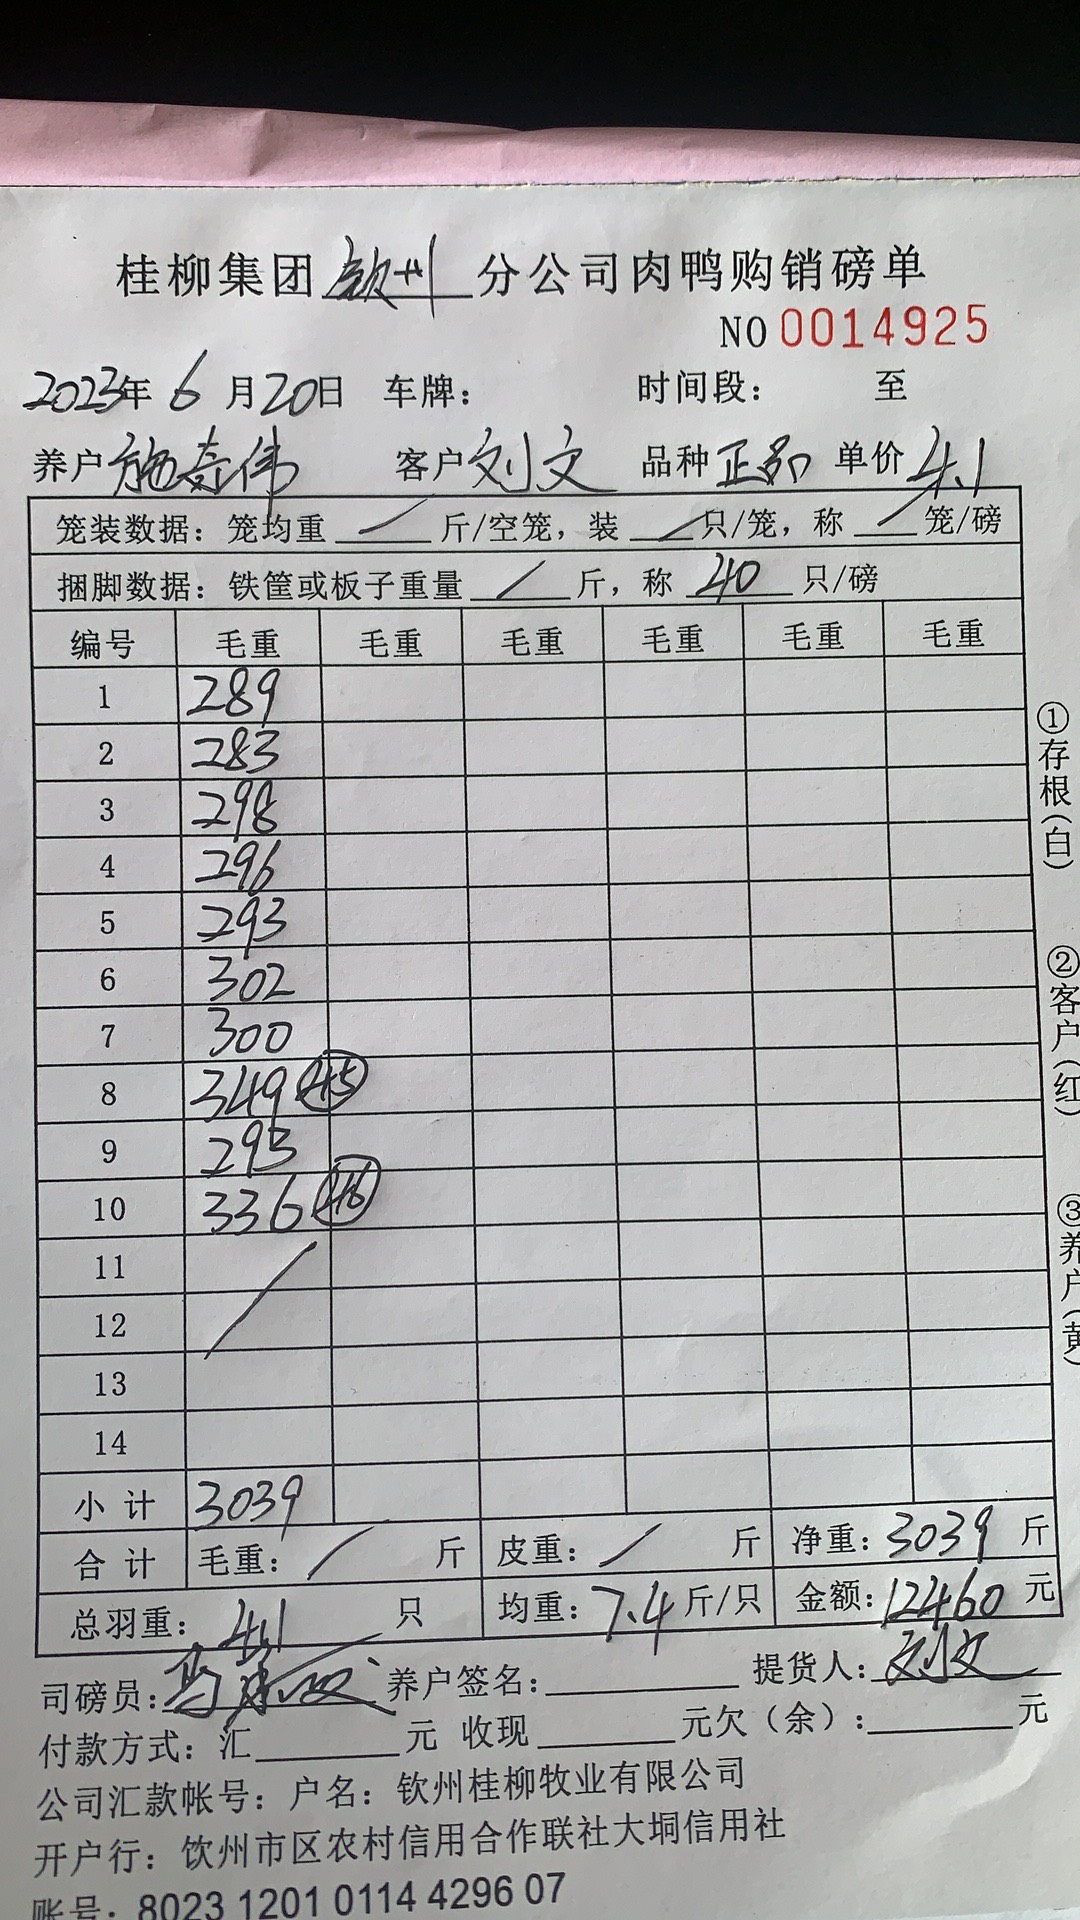 桂柳集团钦州分公司肉鸭购销磅单
NO 0014925
2023年6月20日 车牌： 时间段： 至
养户施奇伟 客户刘文 品种正品 单价4.1
笼装数据：笼均重 / 斤/空笼，装 / 只/笼，称 / 笼/磅
捆脚数据：铁筐或板子重量 / 斤，称 40 只/磅
编号 毛重 毛重 毛重 毛重 毛重 毛重
1 289
2 283
3 298
4 296
5 293
6 302
7 300
8 349 45
9 293
10 336 46
11
12
13
14
小计 3039
合计 毛重： / 斤 皮重： / 斤 净重：3039 斤
总羽重：411 只 均重：7.4 斤/只 金额：12460 元
司磅员： 养户签名： 提货人：刘文
付款方式：汇 元 收现 元欠（余）： 元
公司汇款帐号：户名：钦州桂柳牧业有限公司
开户行：钦州市区农村信用合作联社大垌信用社
账号：8023 1201 0114 4296 07
①存根（白）
②客户（红）
③养户（黄）